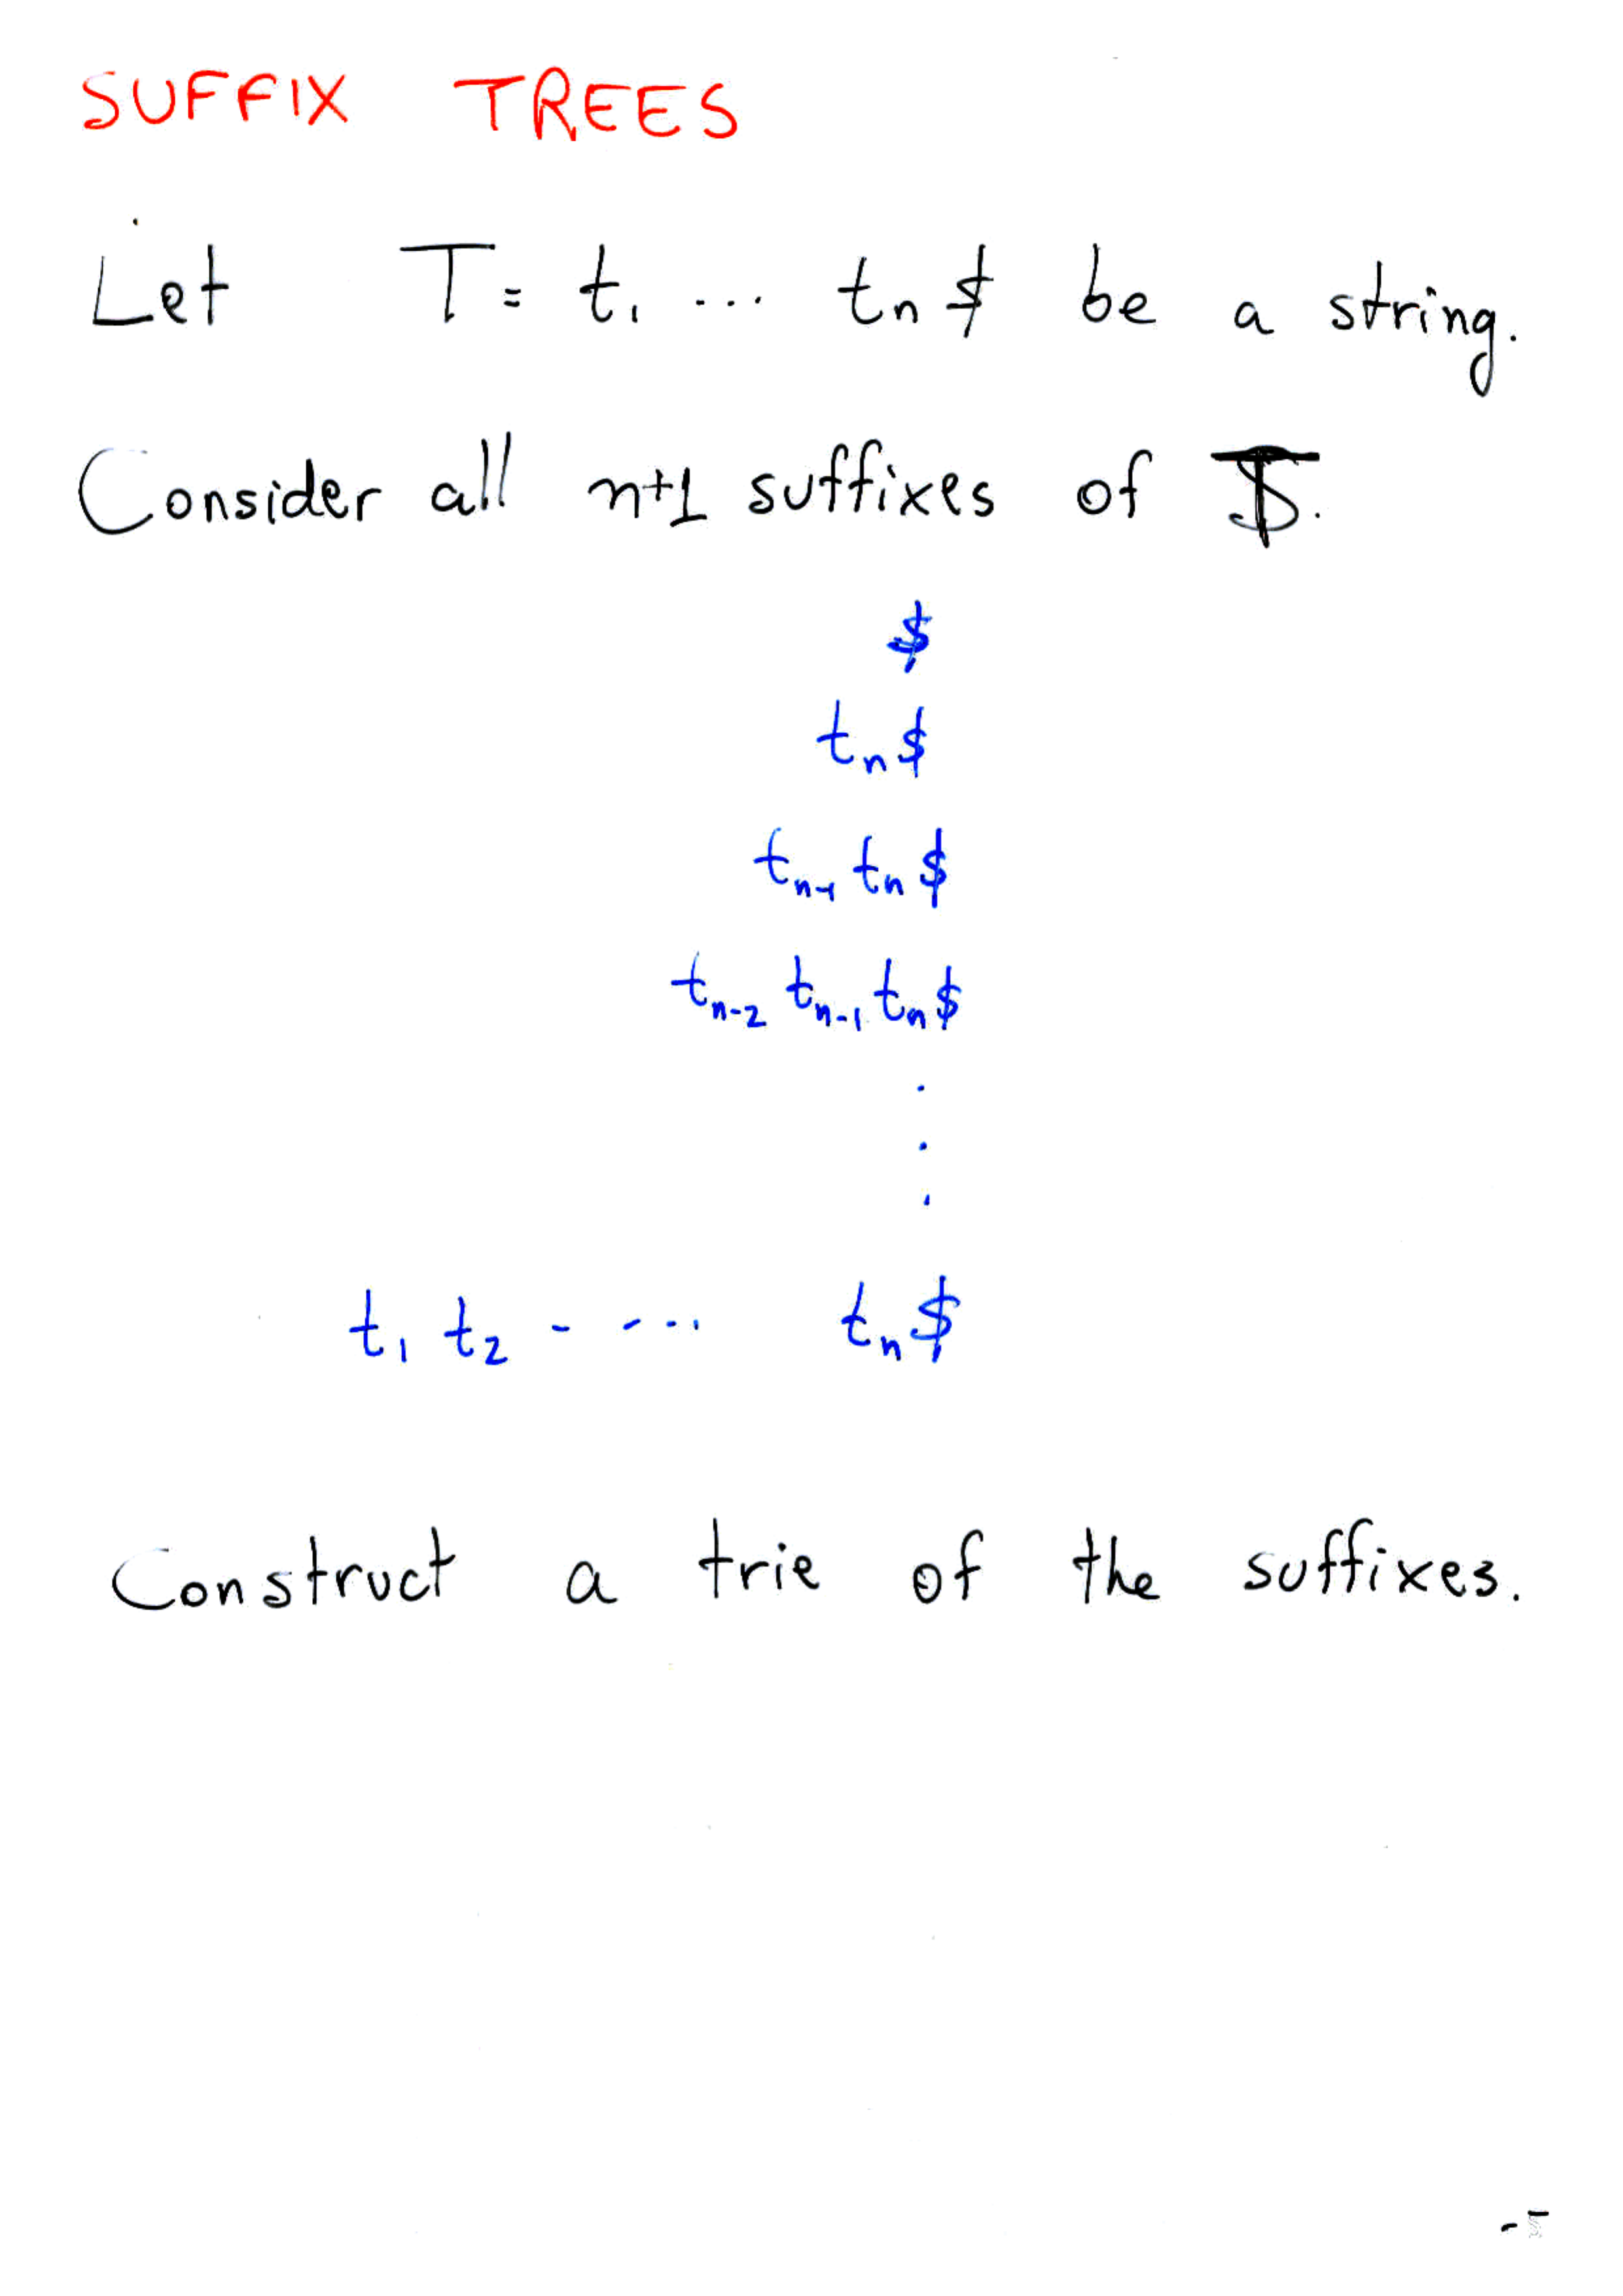 SUFFIX TREES
Let T = t₁ ... tₙ $ be a string.
Consider all n+1 suffixes of T.
$
tₙ $
tₙ₋₁ tₙ $
tₙ₋₂ tₙ₋₁ tₙ $
.
.
.
t₁ t₂ - - ... tₙ $
Construct a trie of the suffixes.